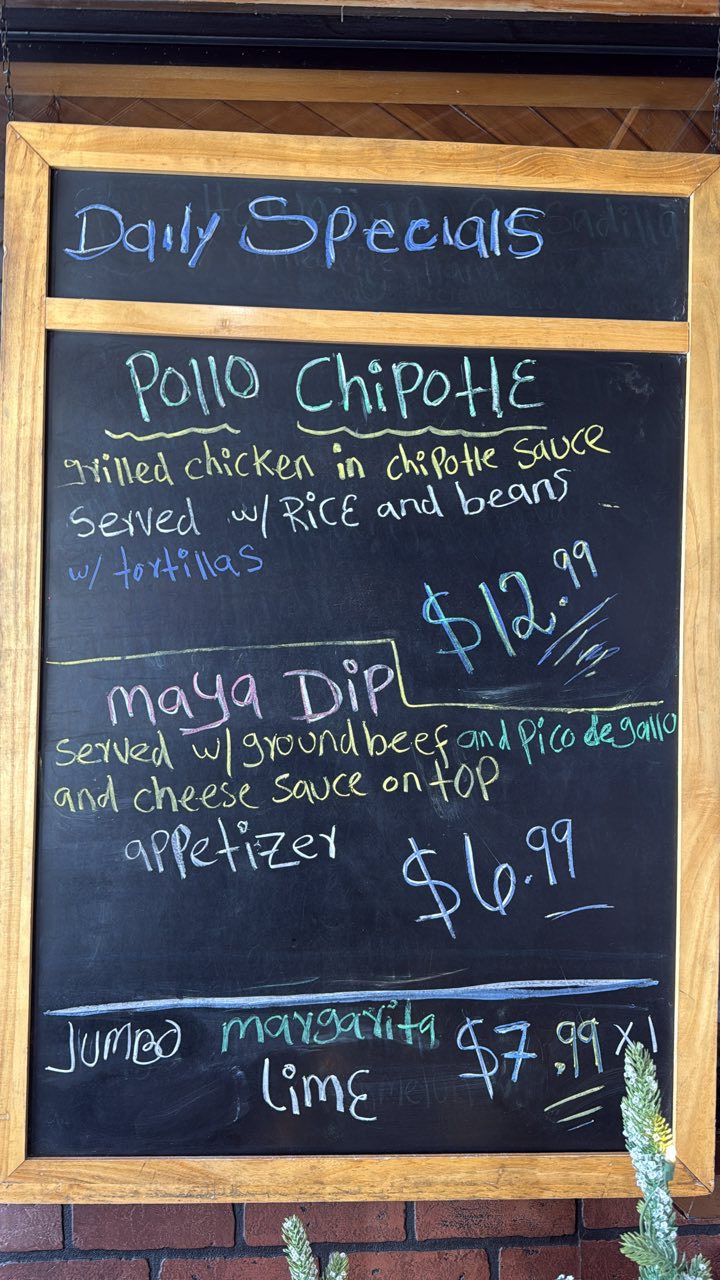 Daily Specials
Pollo Chipotle
grilled chicken in chipotle sauce
served w/ Rice and beans
w/ tortillas
$12.99
maya Dip
served w/ ground beef and Pico de gallo
and cheese sauce on top
appetizer
$6.99
Jumbo margarita $7.99 x1
Lime